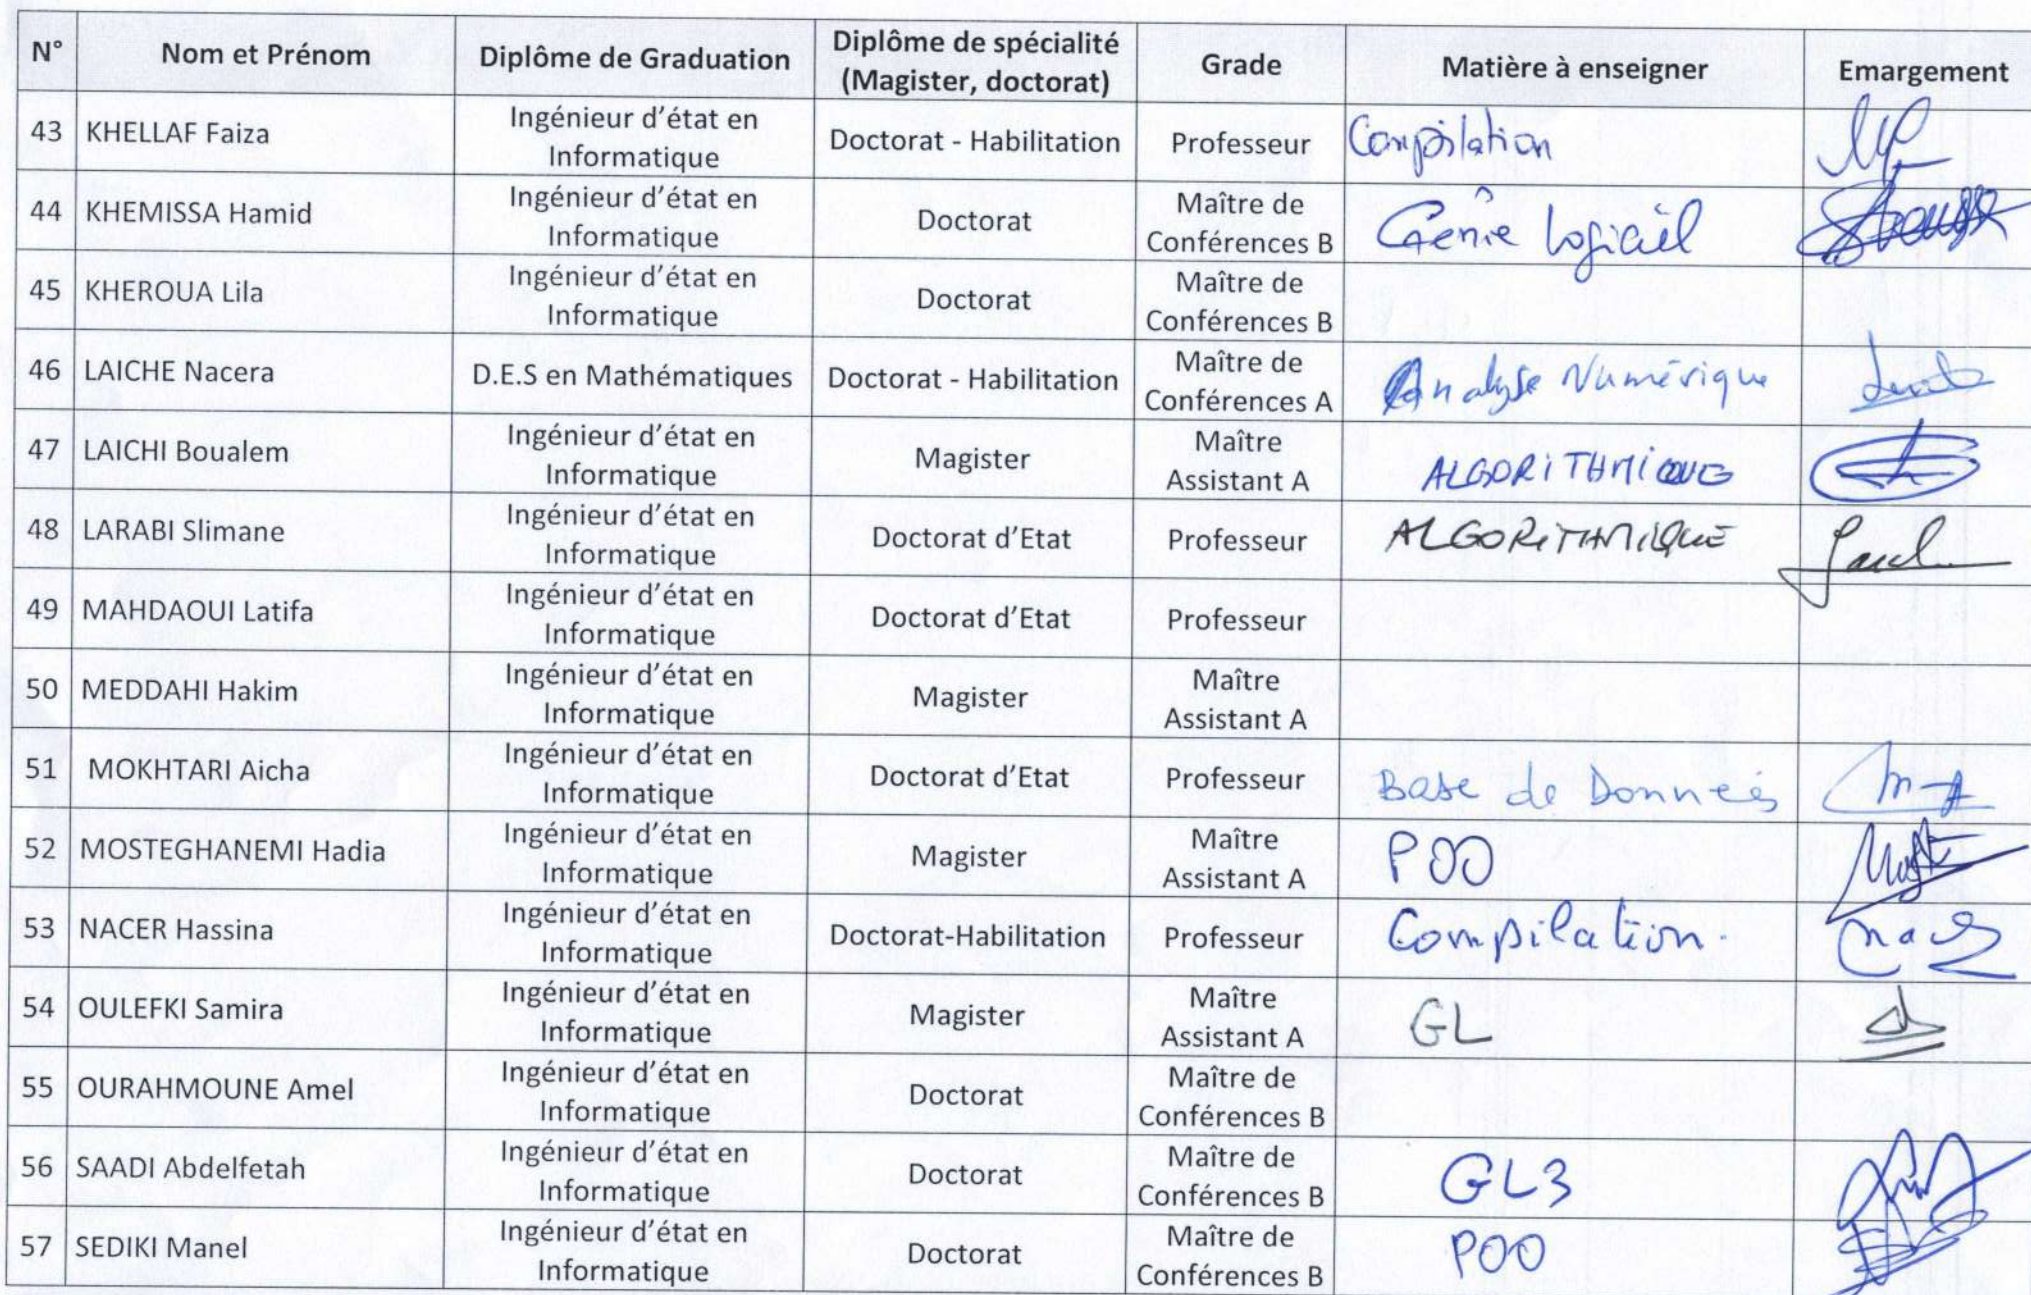 N° Nom et Prénom Diplôme de Graduation Diplôme de spécialité (Magister, doctorat) Grade Matière à enseigner Emargement
43 KHELLAF Faiza Ingénieur d'état en Informatique Doctorat - Habilitation Professeur Compilation
44 KHEMISSA Hamid Ingénieur d'état en Informatique Doctorat Maître de Conférences B Génie Logiciel
45 KHEROUA Lila Ingénieur d'état en Informatique Doctorat Maître de Conférences B
46 LAICHE Nacera D.E.S en Mathématiques Doctorat - Habilitation Maître de Conférences A Analyse Numérique
47 LAICHI Boualem Ingénieur d'état en Informatique Magister Maître Assistant A ALGORITHMIQUE
48 LARABI Slimane Ingénieur d'état en Informatique Doctorat d'Etat Professeur ALGORITHMIQUE
49 MAHDAOUI Latifa Ingénieur d'état en Informatique Doctorat d'Etat Professeur
50 MEDDAHI Hakim Ingénieur d'état en Informatique Magister Maître Assistant A
51 MOKHTARI Aicha Ingénieur d'état en Informatique Doctorat d'Etat Professeur Base de Données
52 MOSTEGHANEMI Hadia Ingénieur d'état en Informatique Magister Maître Assistant A POO
53 NACER Hassina Ingénieur d'état en Informatique Doctorat-Habilitation Professeur Compilation.
54 OULEFKI Samira Ingénieur d'état en Informatique Magister Maître Assistant A GL
55 OURAHMOUNE Amel Ingénieur d'état en Informatique Doctorat Maître de Conférences B
56 SAADI Abdelfetah Ingénieur d'état en Informatique Doctorat Maître de Conférences B GL3
57 SEDIKI Manel Ingénieur d'état en Informatique Doctorat Maître de Conférences B POO